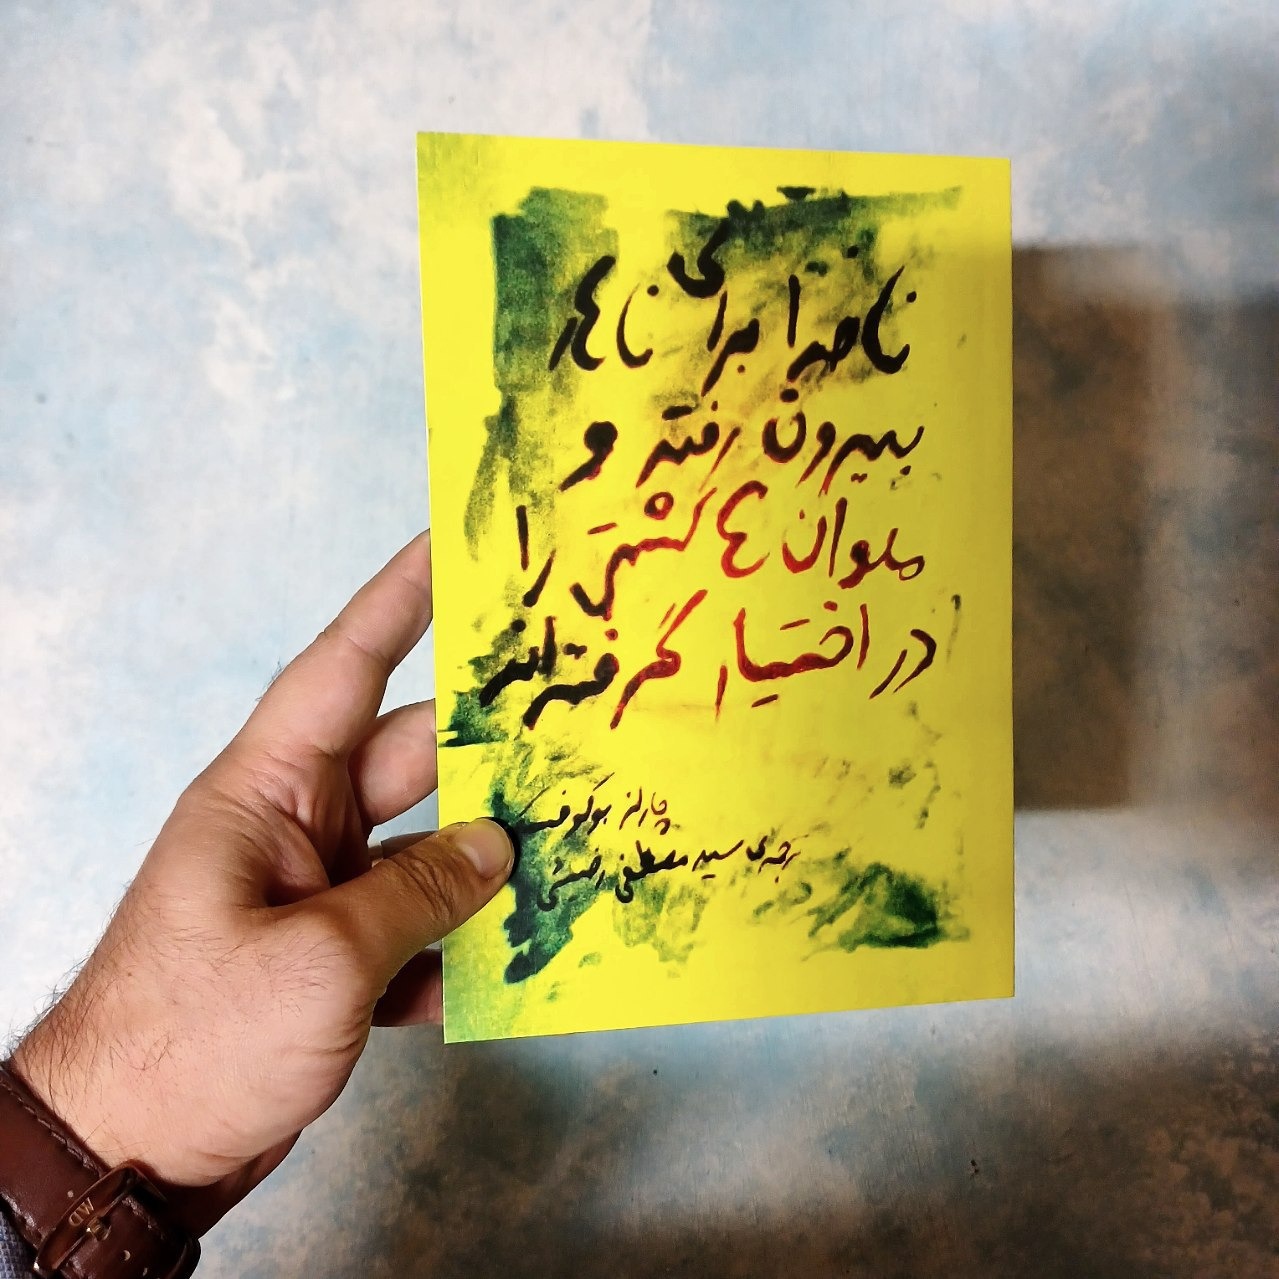 ناخدا برای ناهار
بیرون رفته و
ملوان‌ها کشتی را
در اختیار گرفته‌اند
چارلز بوکوفسکی
ترجمه‌ی سید مصطفی رضیئی